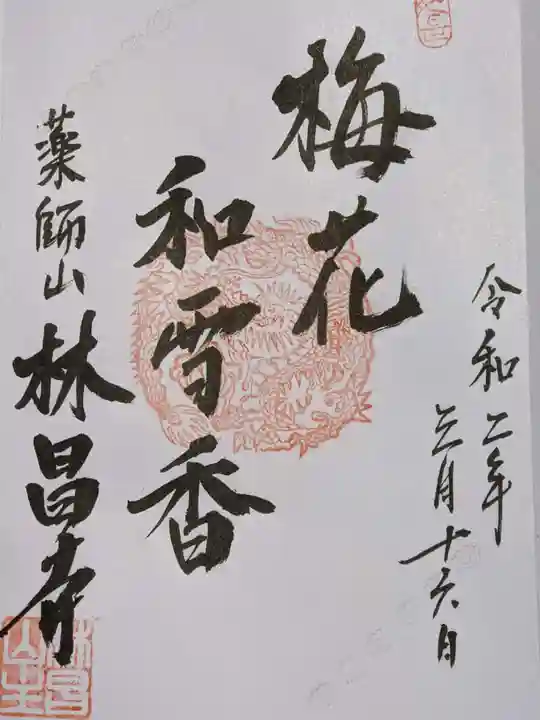 令和二年
三月十六日
梅花
和雪香
薬師山林昌寺